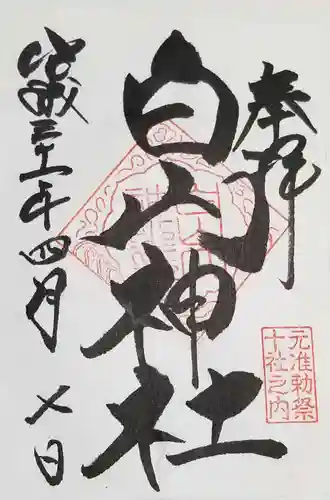 奉拝
白山神社
平成三十一年四月七日
元准勅祭
十社之内